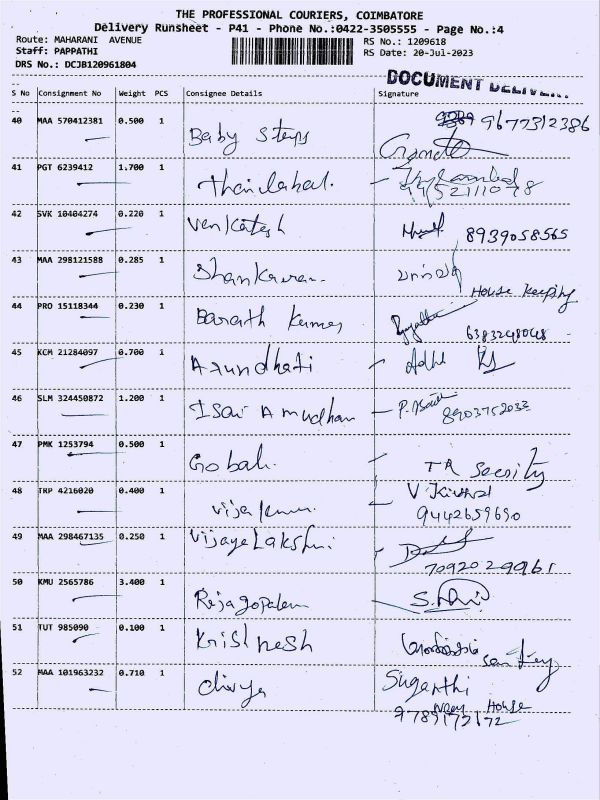 THE PROFESSIONAL COURIERS, COIMBATORE
Delivery Runsheet - P41 - Phone No.:0422-3505555 - Page No.:4
Route: MAHARANI AVENUE
Staff: PAPPATHI
DRS No.: DCJB120961804
RS No.: 1209618
RS Date: 20-Jul-2023
DOCUMENT
S No Consignment No Weight PCS Consignee Details Signature
40 MAA 570412381 0.500 1 Baby Steps 9677312386
41 PGT 6239412 1.700 1
42 SVK 10404274 0.220 1 Venkatesh 8939058565
43 MAA 298121588 0.285 1 Shankaran
House keeping
44 PRO 15118344 0.230 1 Barath Kumar
6383248048
45 KCM 21284097 0.700 1 Arundhati
46 SLM 324450872 1.200 1 Isai Amudhan 8903752033
47 PMK 1253794 0.500 1 TR
48 TRP 4216020 0.400 1 Vijaykumar V
9442659690
49 MAA 298467135 0.250 1 VijayeLakshmi
7092029961
50 KMU 2565786 3.400 1 Rajagopalan
51 TUT 985090 0.100 1 Krishnesh
52 MAA 101963232 0.710 1 divya Suganthi
House